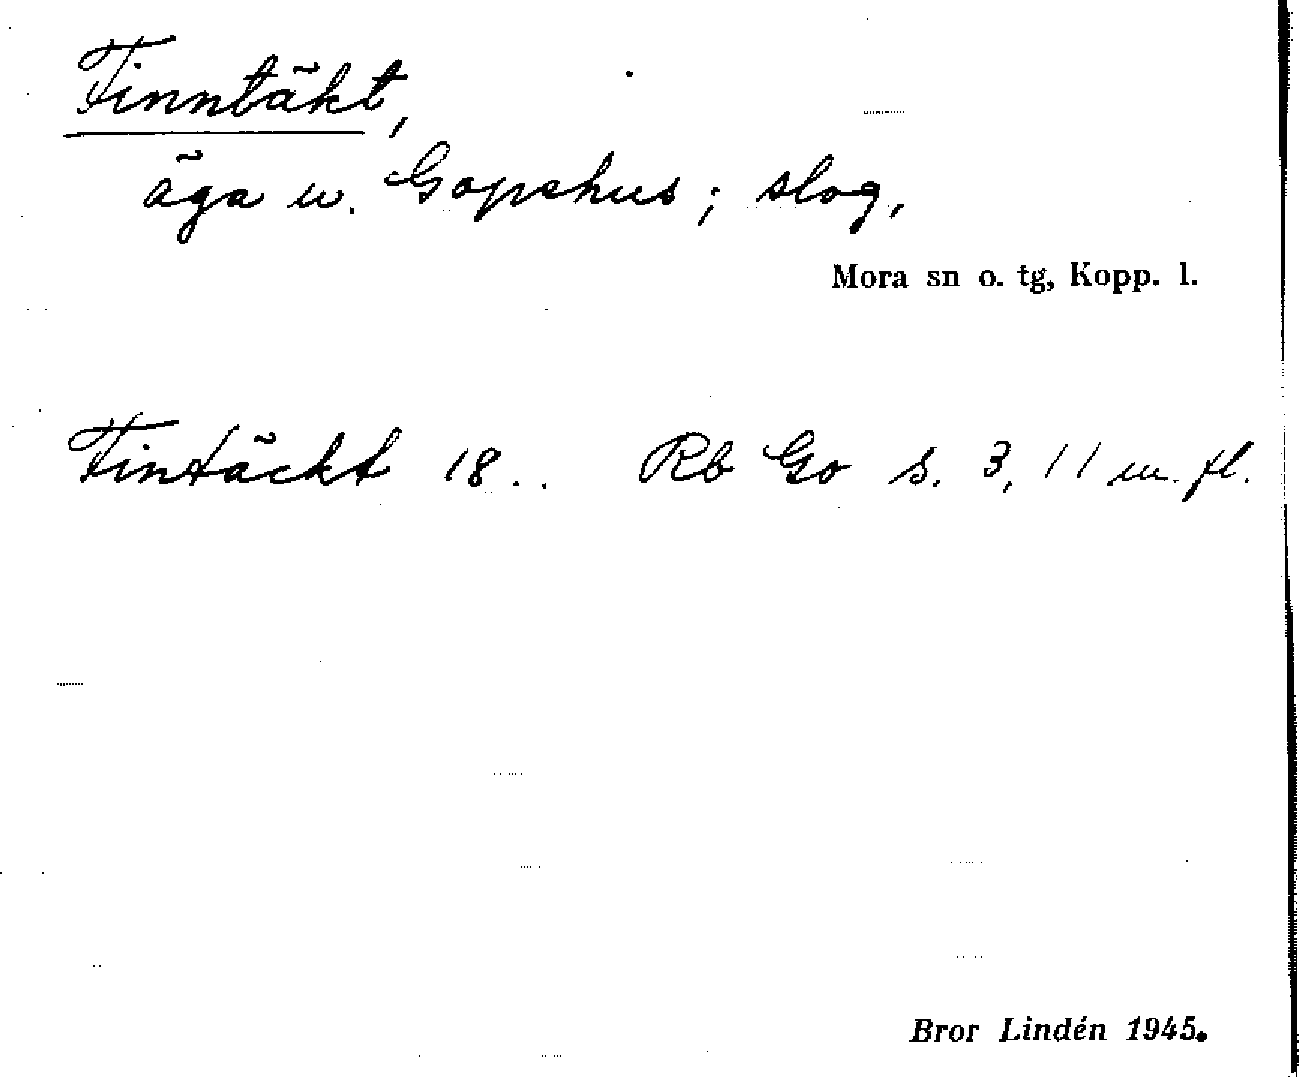 Finntäkt,
äga u. Gopshus; slog,
Mora sn o. tg, Kopp. l.
Fintäckt 18.. Rb Go s. 3, 11 m. fl.
Bror Lindén 1945.